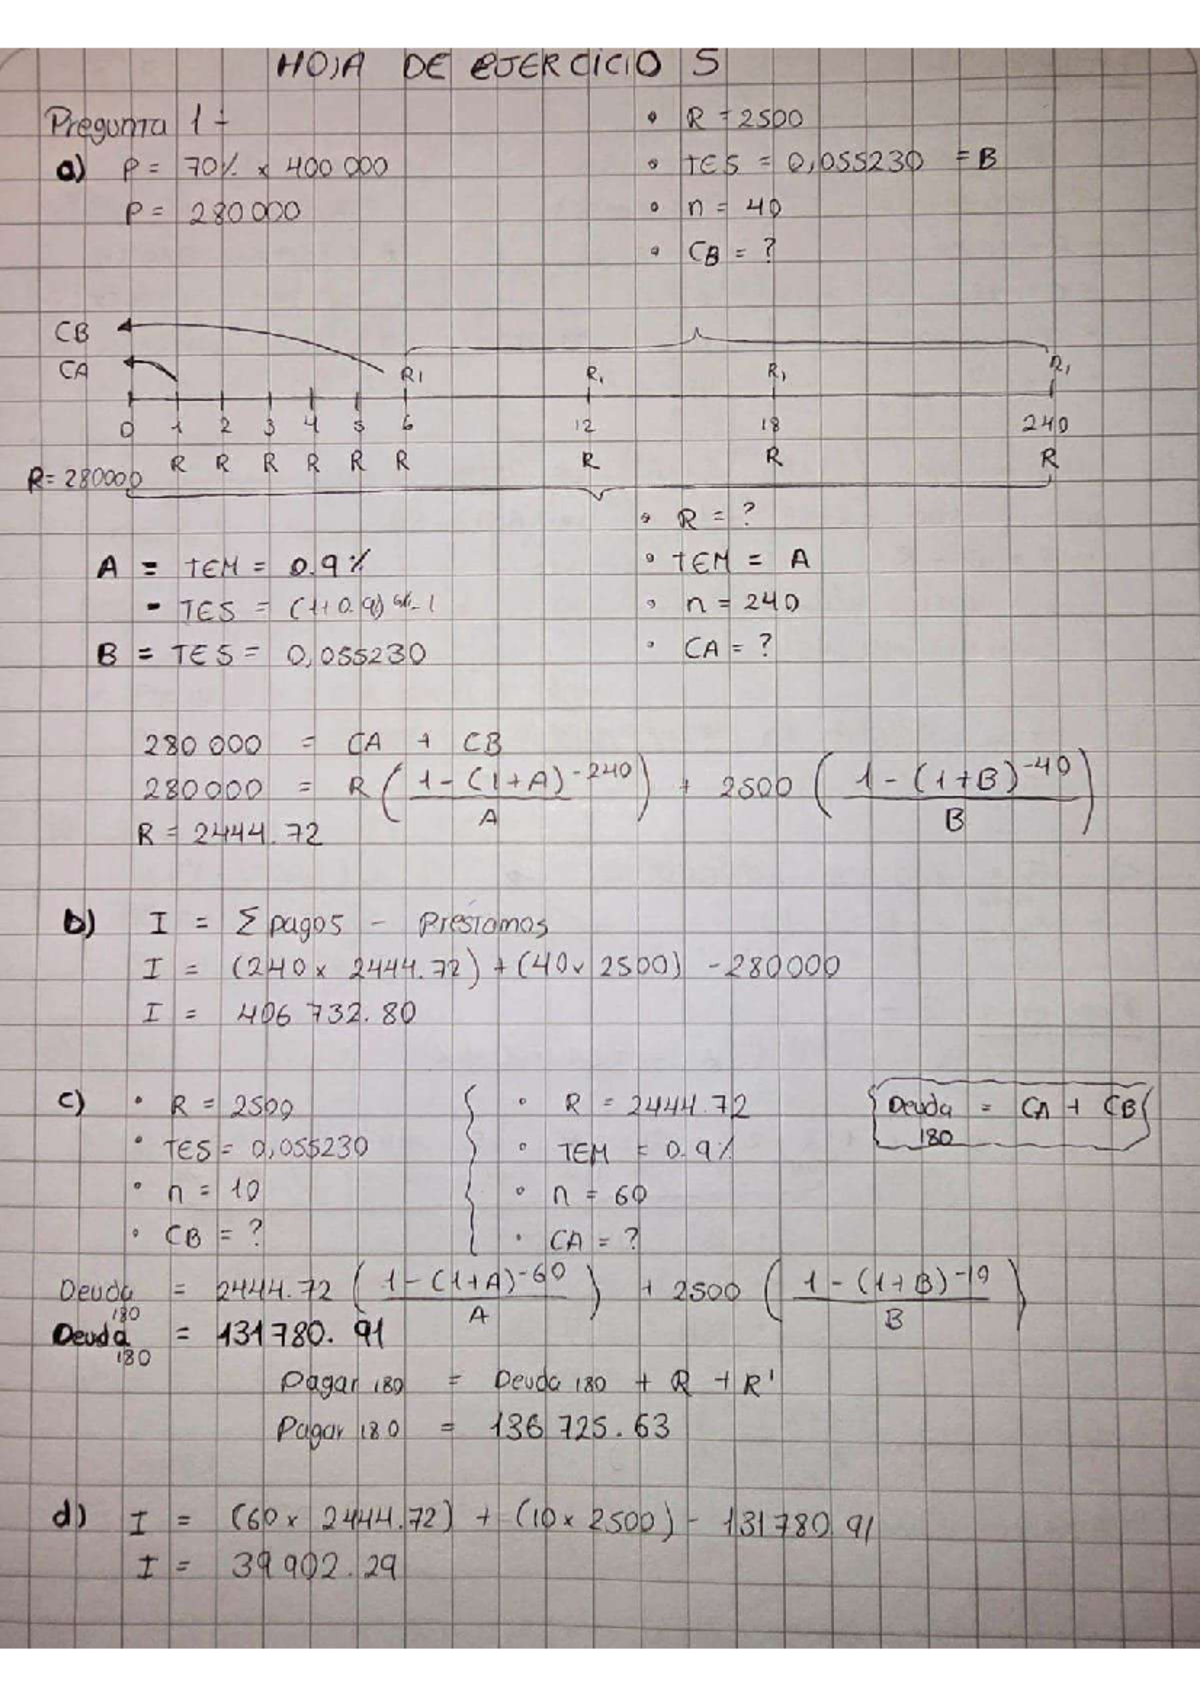 HOJA DE EJERCICIO 5
Pregunta 1 -
a) P = 70% x 400 000
P = 280 000
• R = 2500
• TES = 0,055230 = B
• n = 40
• CB = ?
CB
CA
R1 R1 R1 R1
0 1 2 3 4 5 6 12 18 240
R R R R R R R R R
R = 280000
• R = ?
• TEM = A
• n = 240
• CA = ?
A = TEM = 0.9%
- TES = (1+0.9)^6/1 - 1
B = TES = 0,055230
280 000 = CA + CB
280000 = R ( 1 - (1+A)^-240 / A ) + 2500 ( 1 - (1+B)^-40 / B )
R = 2444.72
b) I = Σ pagos - Préstamos
I = (240 x 2444.72) + (40 x 2500) - 280000
I = 406 732.80
c) • R = 2500
• TES = 0,055230
• n = 10
• CB = ?
• R = 2444.72
• TEM = 0.9%
• n = 60
• CA = ?
Deuda 180 = CA + CB
Deuda 180 = 2444.72 ( 1 - (1+A)^-60 / A ) + 2500 ( 1 - (1+B)^-10 / B )
Deuda 180 = 131780.91
Pagar 180 = Deuda 180 + R + R'
Pagar 180 = 136 725.63
d) I = (60 x 2444.72) + (10 x 2500) - 131780.91
I = 39 902.29